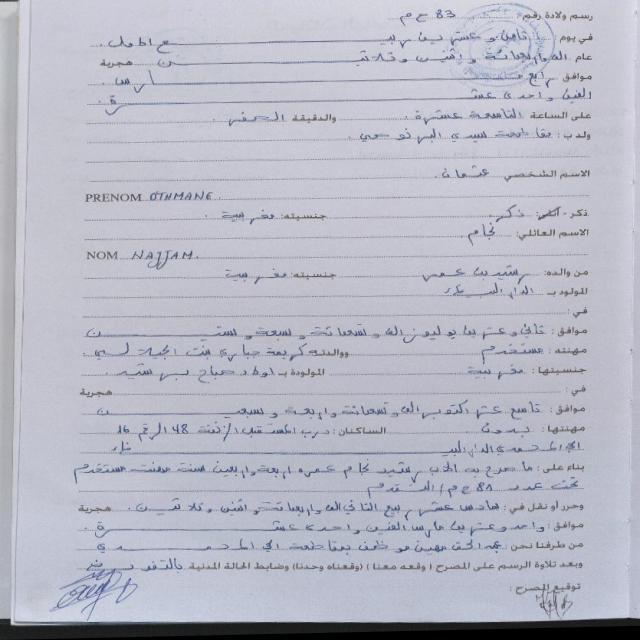 رسم ولادة رقم: 83 ح م
في يوم ثامن وعشرين ربيع الأول
عام ألف وأربعمائة واثنين وثلاثين هجرية
موافق رابع مارس
ألفين وإحدى عشرة
على الساعة التاسعة عشرة والدقيقة الصفر
ولد ب: مقاطعة سيدي البرنوصي
الاسم الشخصي عثمان
PRENOM OTHMANE
ذكر - أنثى: ذكر جنسيته: مغربية
الاسم العائلي: نجام
NOM NAJJAM
من والده: رشيد بن عمر جنسيته: مغربية
المولود ب الدار البيضاء
في:
موافق: ثاني وعشرين يوليوز ألف وتسعمائة وسبعة وستين
مهنته: مستخدم ووالدته كريمة جباري بنت
جنسيتها: مغربية المولودة ب أولاد صباح
في: هجرية
موافق: تاسع عشر أكتوبر ألف وتسعمائة وأربعة وسبعين
مهنتها: بدون الساكنان: درب المستقبل الزنقة 48 الرقم 16
الحي المحمدي الدار البيضاء
بناء على: ما صرح به الأب رشيد نجام عمره أربعة وأربعين سنة مهنته مستخدم
تحت عدد
وحرر أو نقل في: سادس عشر ربيع الثاني ألف وأربعمائة واثنين وثلاثين هجرية
موافق: واحد وعشرين مارس ألفين وإحدى عشرة
من طرفنا نحن: عبد الحق مفوض بمقاطعة الحي المحمدي
وبعد تلاوة الرسم على المصرح (وقعه معنا) (وقعناه وحدنا) وضابط الحالة المدنية بالتفويض
توقيع المصرح: